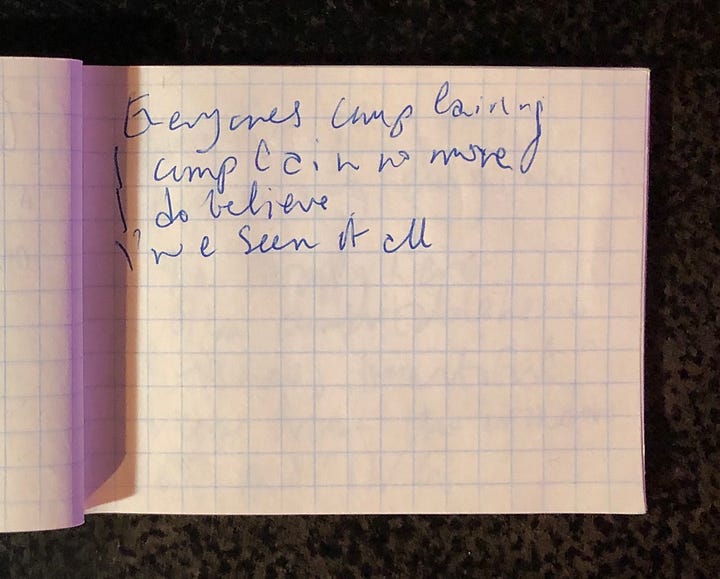 Everyones complaining
I complain no more
I do believe
I've seen it all